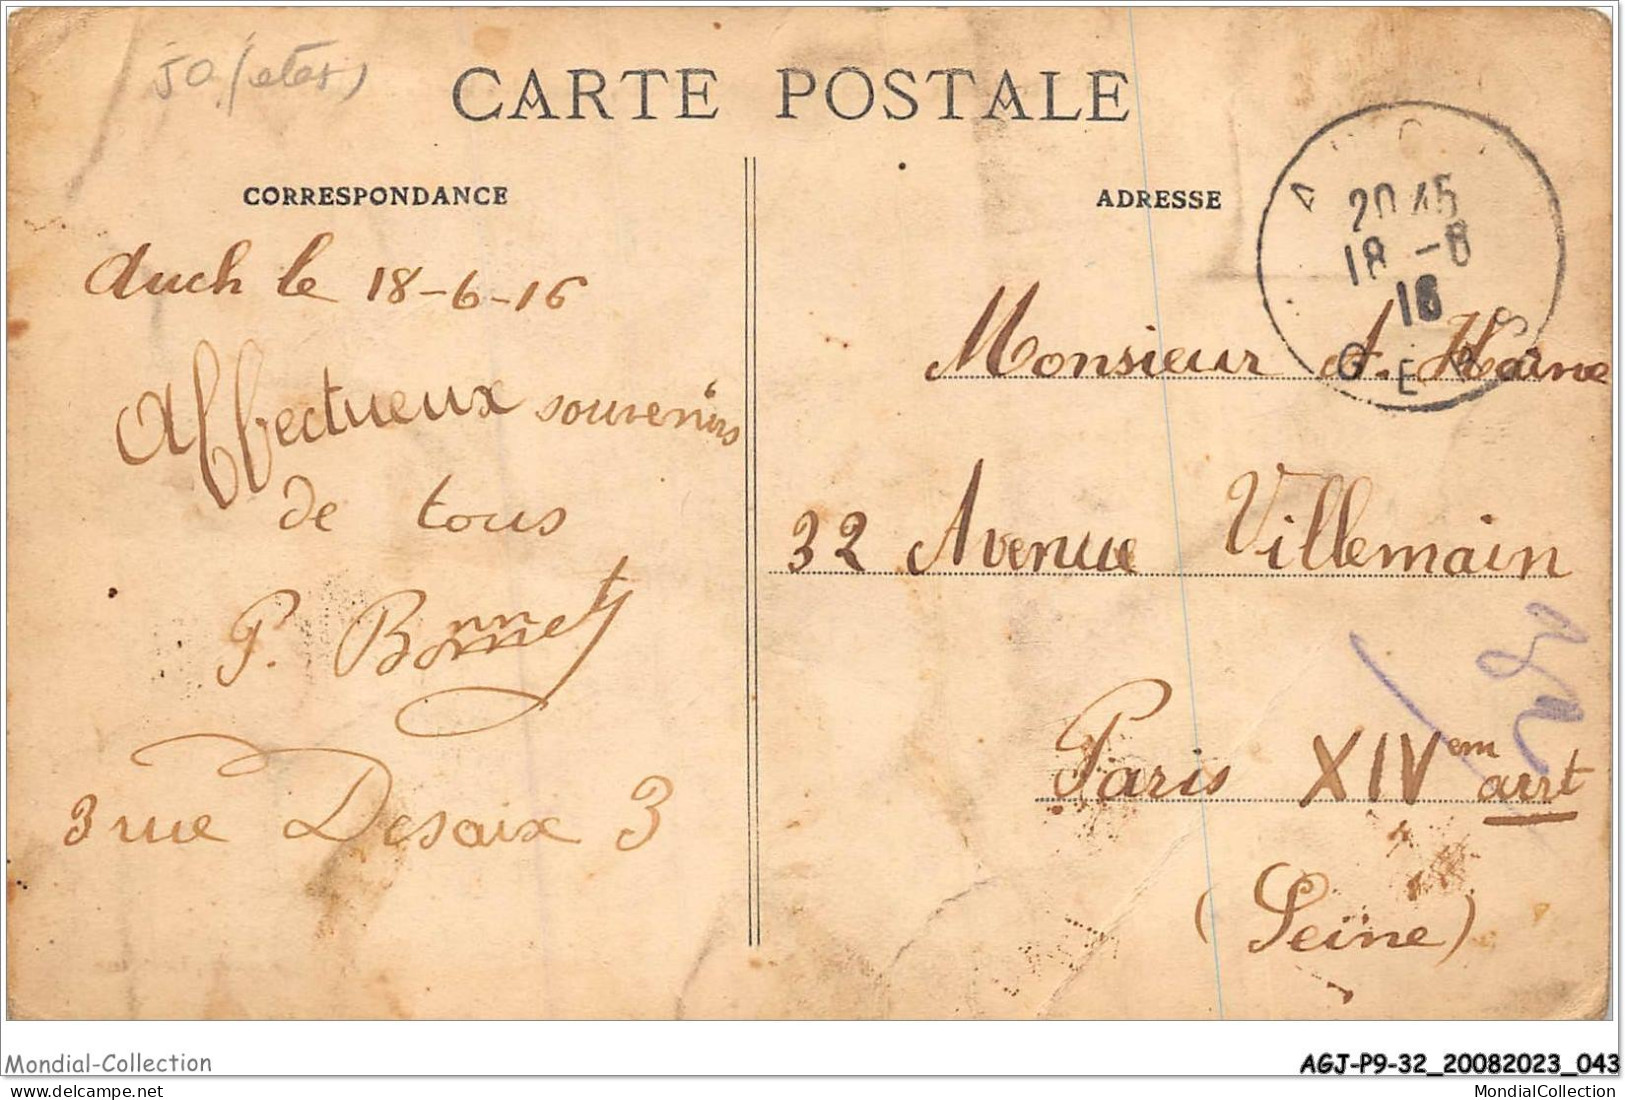 50 (états)
CARTE POSTALE
CORRESPONDANCE
Auch le 18-6-16
Affectueux souvenirs
de tous
P. Bonnet
3 rue Desaix 3
ADRESSE
20 45
18 -6
16
GERS
Monsieur A.
32 Avenue Villemain
Paris XIVem arrt
(Seine)
Mondial-Collection
AGJ-P9-32_20082023_043
www.delcampe.net
MondialCollection